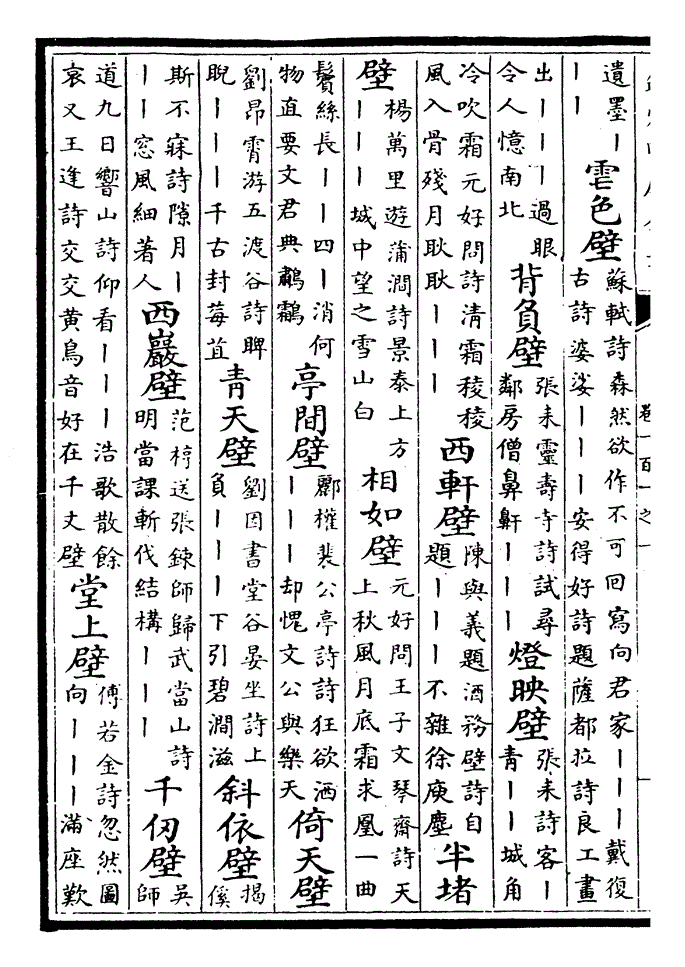 遺墨丨
丨丨
雪色壁
蘇軾詩森然欲作不可回寫向君家丨丨丨戴復
古詩婆娑丨丨丨安得好詩題薩都拉詩良工畫
出丨丨丨過眼
令人憶南北
背負壁
張耒靈壽寺詩試尋
鄰房僧鼻鼾丨丨丨
燈映壁
張耒詩客丨
青丨丨城角
冷吹霜元好問詩清霜稜稜
風入骨殘月耿耿丨丨丨
西軒壁
陳與義題酒務壁詩自
題丨丨丨不雜徐庾塵
半堵
壁
楊萬里遊蒲澗詩景泰上方
丨丨丨城中望之雪山白
相如壁
元好問王子文琴齋詩天
上秋風月底霜求凰一曲
鬢絲長丨丨四丨消何
物直要文君典鷫鸘
亭間壁
酈權裴公亭詩詩狂欲洒
丨丨丨却愧文公與樂天
倚天壁
劉昂霄游五渡谷詩睥
睨丨丨丨千古封莓苴
青天壁
劉因書堂谷晏坐詩上
負丨丨丨下引碧澗滋
斜依壁
揭
傒
斯不寐詩隙月丨
丨丨窓風細著人
西巖壁
范梈送張鍊師歸武當山詩
明當課斬伐結構丨丨丨
千仞壁
吳
師
道九日響山詩仰看丨丨丨浩歌散餘
哀又王逢詩交交黄鳥音好在千丈壁
堂上壁
傅若金詩忽然圖
向丨丨丨滿座歎
卷一百一之一